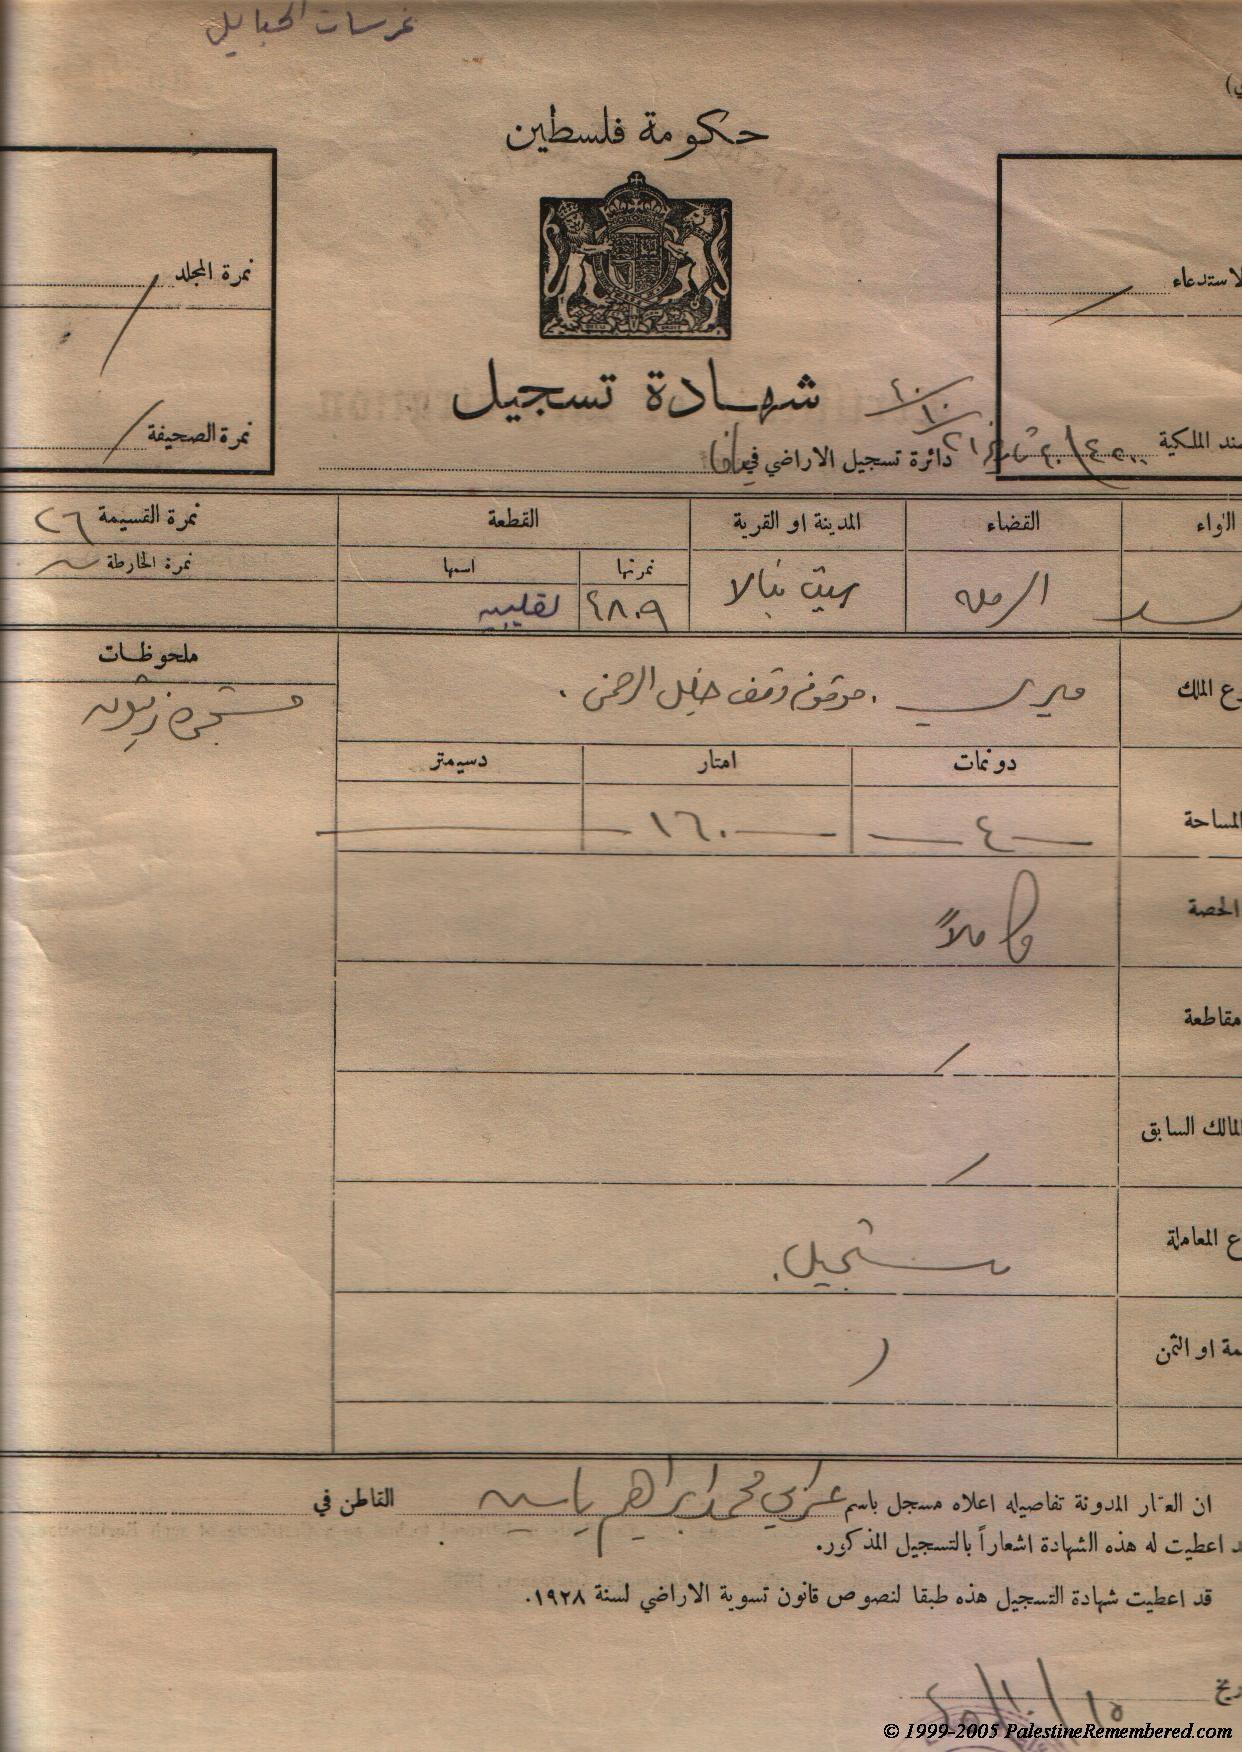 غرسات الحبايل
حكومة فلسطين
نمرة المجلد
الاستدعاء
شهادة تسجيل
نمرة الصحيفة
سند الملكية
دائرة تسجيل الاراضي في يافا
اللواء القضاء المدينة او القرية القطعة نمرة القسيمة ٢٦
نمرتها اسمها نمرة الخارطة
الرمله بيت نبالا ٤٨٠٩
ملحوظات
نوع الملك ميري موقوف وقف خليل الرحمن.
مشجره زيتون
دونمات امتار دسيمتر
المساحة ٤ ١٦٠
الحصة كاملاً
مقاطعة
المالك السابق
نوع المعاملة تسجيل.
القيمة او الثمن
ان العقار المدونة تفاصيله اعلاه مسجل باسم محمد ابراهيم ياسين القاطن في
قد اعطيت له هذه الشهادة اشعاراً بالتسجيل المذكور.
قد اعطيت شهادة التسجيل هذه طبقا لنصوص قانون تسوية الاراضي لسنة ١٩٢٨.
© 1999-2005 PalestineRemembered.com